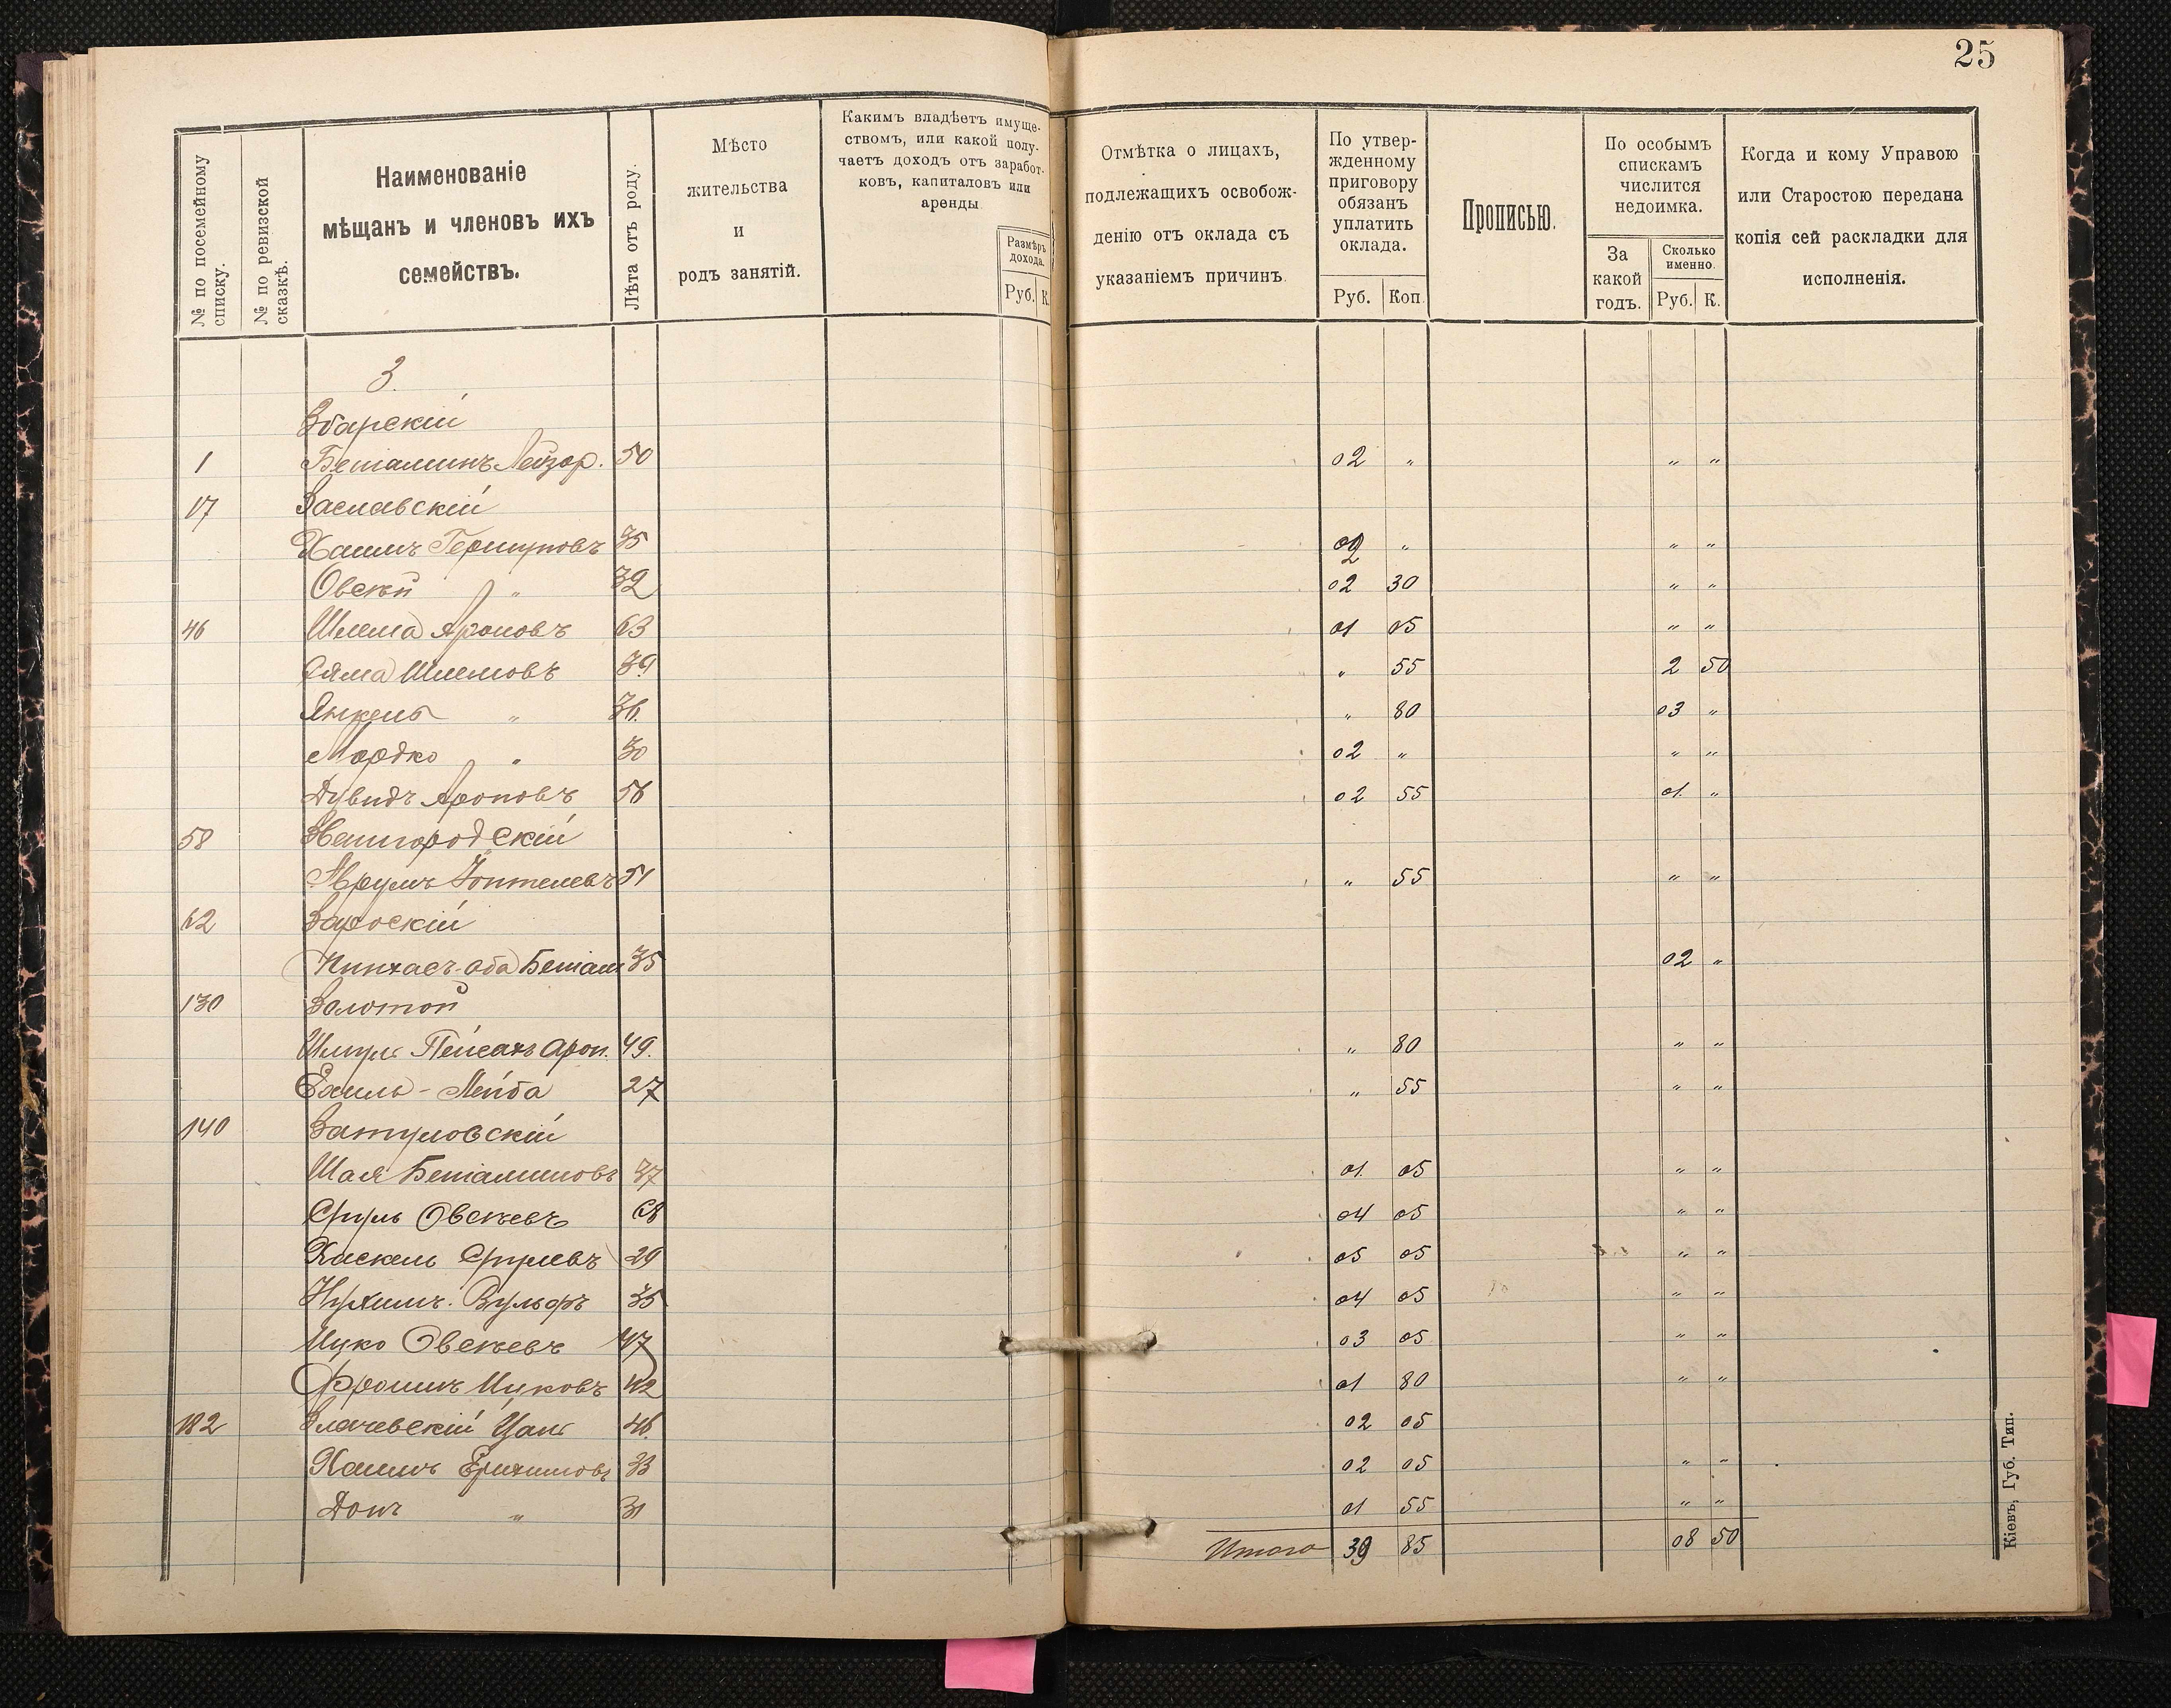 25
№ по посемейному списку.
№ по ревизской сказкѣ.
Наименованіе
мѣщанъ и членовъ ихъ
семействъ.
Лѣта отъ роду.
Мѣсто
жительства
и
родъ занятій.
Какимъ владѣетъ имуще-
ствомъ, или какой полу-
чаетъ доходъ отъ заработ-
ковъ, капиталовъ или
аренды
Размѣръ
дохода.
Руб. К.
Отмѣтка о лицахъ,
подлежащихъ освобож-
денію отъ оклада съ
указаніемъ причинъ.
По утвер-
жденному
приговору
обязанъ
уплатить
оклада.
Руб. Коп.
Прописью.
По особымъ
спискамъ
числится
недоимка.
За
какой
годъ.
Сколько
именно.
Руб. К.
Когда и кому Управою
или Старостою передана
копія сей раскладки для
исполненія.
З.
Збарскій
1 Беніаминъ Лейзор. 50 02 " " "
17 Заславскій
Хаимъ Гершуновъ 35 02 " " "
Овсѣй " 32 02 30 " "
46 Шлема Ароновъ 63 01 05 " "
Зяма Шлемовъ 39 " 55 2 50
Янкель " 36. " 80 03 "
Мордко " 30 02 " " "
Дувидъ Ароновъ 56 02 55 01. "
58 Звенигородскій
Аврумъ 51 " 55 " "
62
Пинхасъ-Аба Беніам 35 02 "
130 Золотой
Шмуль Пейсахъ Арон. 49. " 80 " "
Ехиль-Лейба 27 " 55 " "
140 Затуловскій
Шая Беніаминовъ 37 01. 05 " "
Сруль Овсѣевъ 68 04 05 " "
Хаскель Срулевъ 29 05 05 " "
Нухимъ. Вульфъ 35 04 05 " "
Ицко Овсѣевъ 47 03 05 " "
Фроимъ Ицковъ 42 01 80 " "
182 46. 02 05
Хаимъ 33 02 05 " "
Дон " 31 01 55 " "
Итого 39 85 08 50
Кіевъ, Губ. Тип.